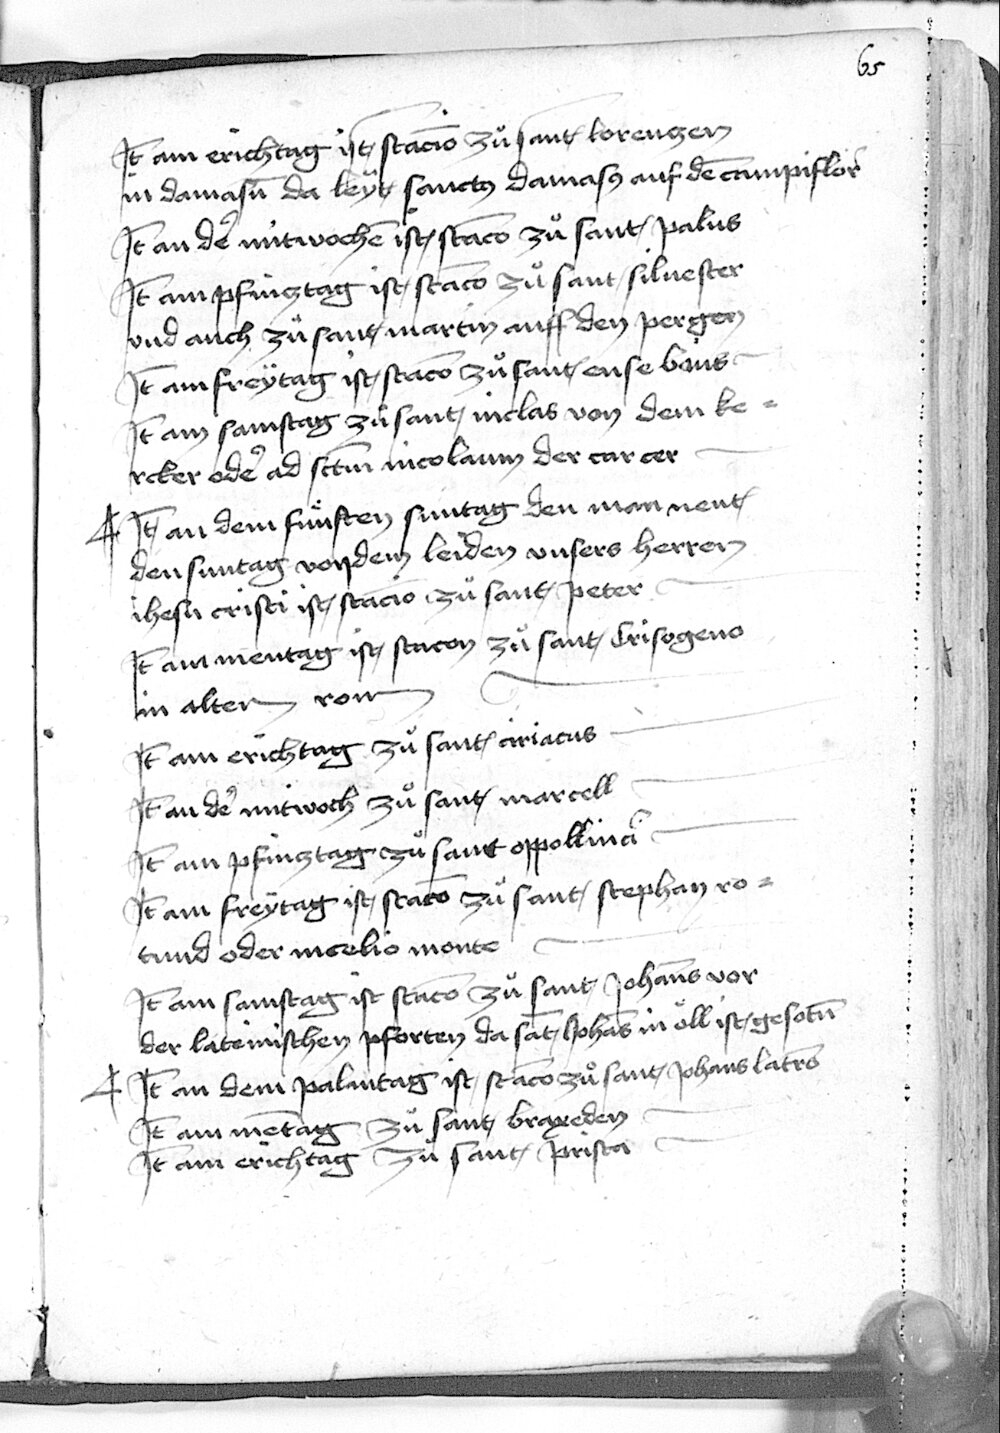 65
It̄ am erichtag ist stac̄io zů sant lorenczen
in damasū da leyt sanctꝰ damasꝰ auf dē campiflor
It̄ an dē mitwochē ist stac̄o zů sant palus
It̄ am pfincztag ist stac̄o zů sant siluester
vnd auch zů sant martin auff den pergen
It̄ am freÿtag ist stac̄o zů sant ense bius
It̄ am samstag zů sant niclas von dem ke=
rcker oder ad sctm̄ nicolaum der carcer
It̄ an dem fünften suntag den man nent
den suntag von dem leiden vnsers herren
ihesu cristi ist stac̄io zů sant peter
It̄ am mentag ist stacon zů sant Crisogeno
in alten rom
It̄ am erichtag zů sant ciriacus
It̄ an dē mitwoch zů sant marcell
It̄ am pfincztag zů sant oppollinā
It̄ am freÿtag ist stac̄o zů sant stephan ro=
tund oder incelio monte
It̄ am samstag ist stac̄o zů sant Johan̄s vor
der lateinischen pforten da sāt Johās in öll ist gesotn̄
It̄ an dem palmtag ist stac̄o zů sant Johans latrō
It̄ am mēntag zů sant braxeden
It̄ am erichtag zů sant prisca